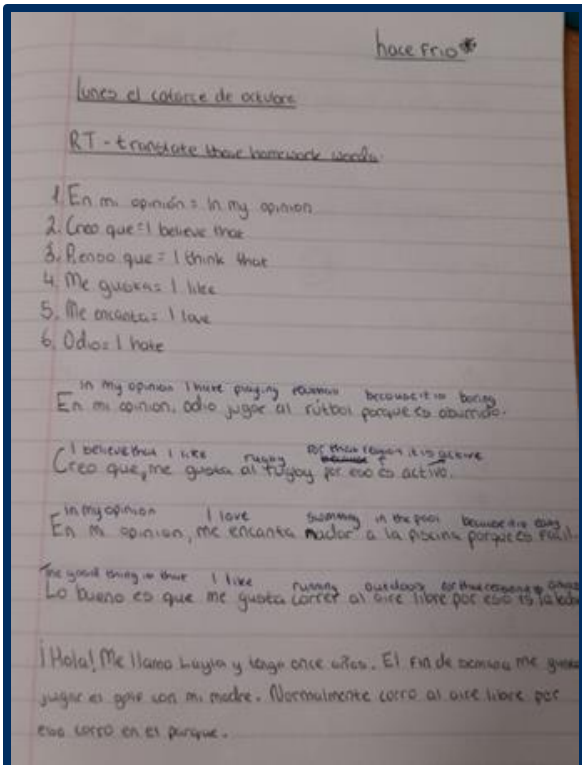 hace frio
lunes el catorce de octubre
RT - translate these homework words.
1. En mi opinión = In my opinion
2. Creo que = I believe that
3. Pienso que = I think that
4. Me gusta = I like
5. Me encanta = I love
6. Odio = I hate
in my opinion I hate playing because it is boring
En mi opinion, odio jugar al fútbol porque es aburrido.
I believe that I like rugby for that reason it is active
Creo que, me gusta al rugby por eso es activo.
in my opinion I love swimming in the pool because it is easy
En mi opinion, me encanta nadar a la piscina porque es facil.
The good thing is that I like running outdoors for that reason
Lo bueno es que me gusta correr al aire libre por eso es
¡Hola! Me llamo Layla y tengo once años. El fin de semana me gusta
jugar el golf con mi madre. Normalmente corro al aire libre por
eso corro en el parque.